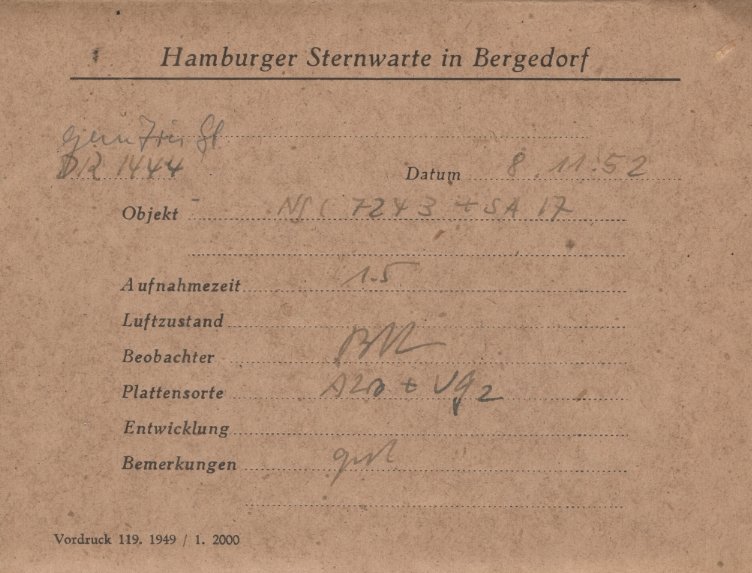 Hamburger Sternwarte in Bergedorf
DR 1444
Datum 8.11.52
Objekt NGC 7243 + SA 17
Aufnahmezeit 1.5
Luftzustand
Beobachter
Plattensorte + UG2
Entwicklung
Bemerkungen gut
Vordruck 119. 1949 / 1. 2000